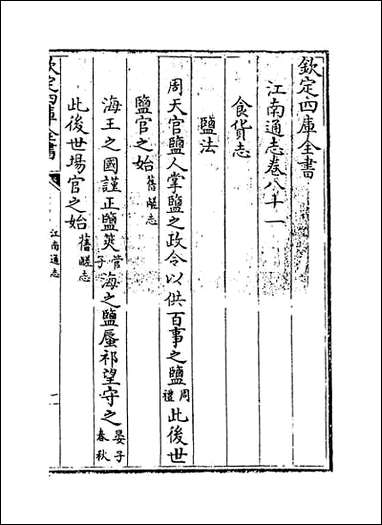 欽定四庫全書
江南通志卷八十一
食貨志
鹽法
周天官鹽人掌鹽之政令以供百事之鹽周禮此後世
鹽官之始舊嵯志
海王之國謹正鹽筴管子海之鹽蜃祁望守之晏子春秋
此後世場官之始舊嵯志
欽定四庫全書
江南通志
一